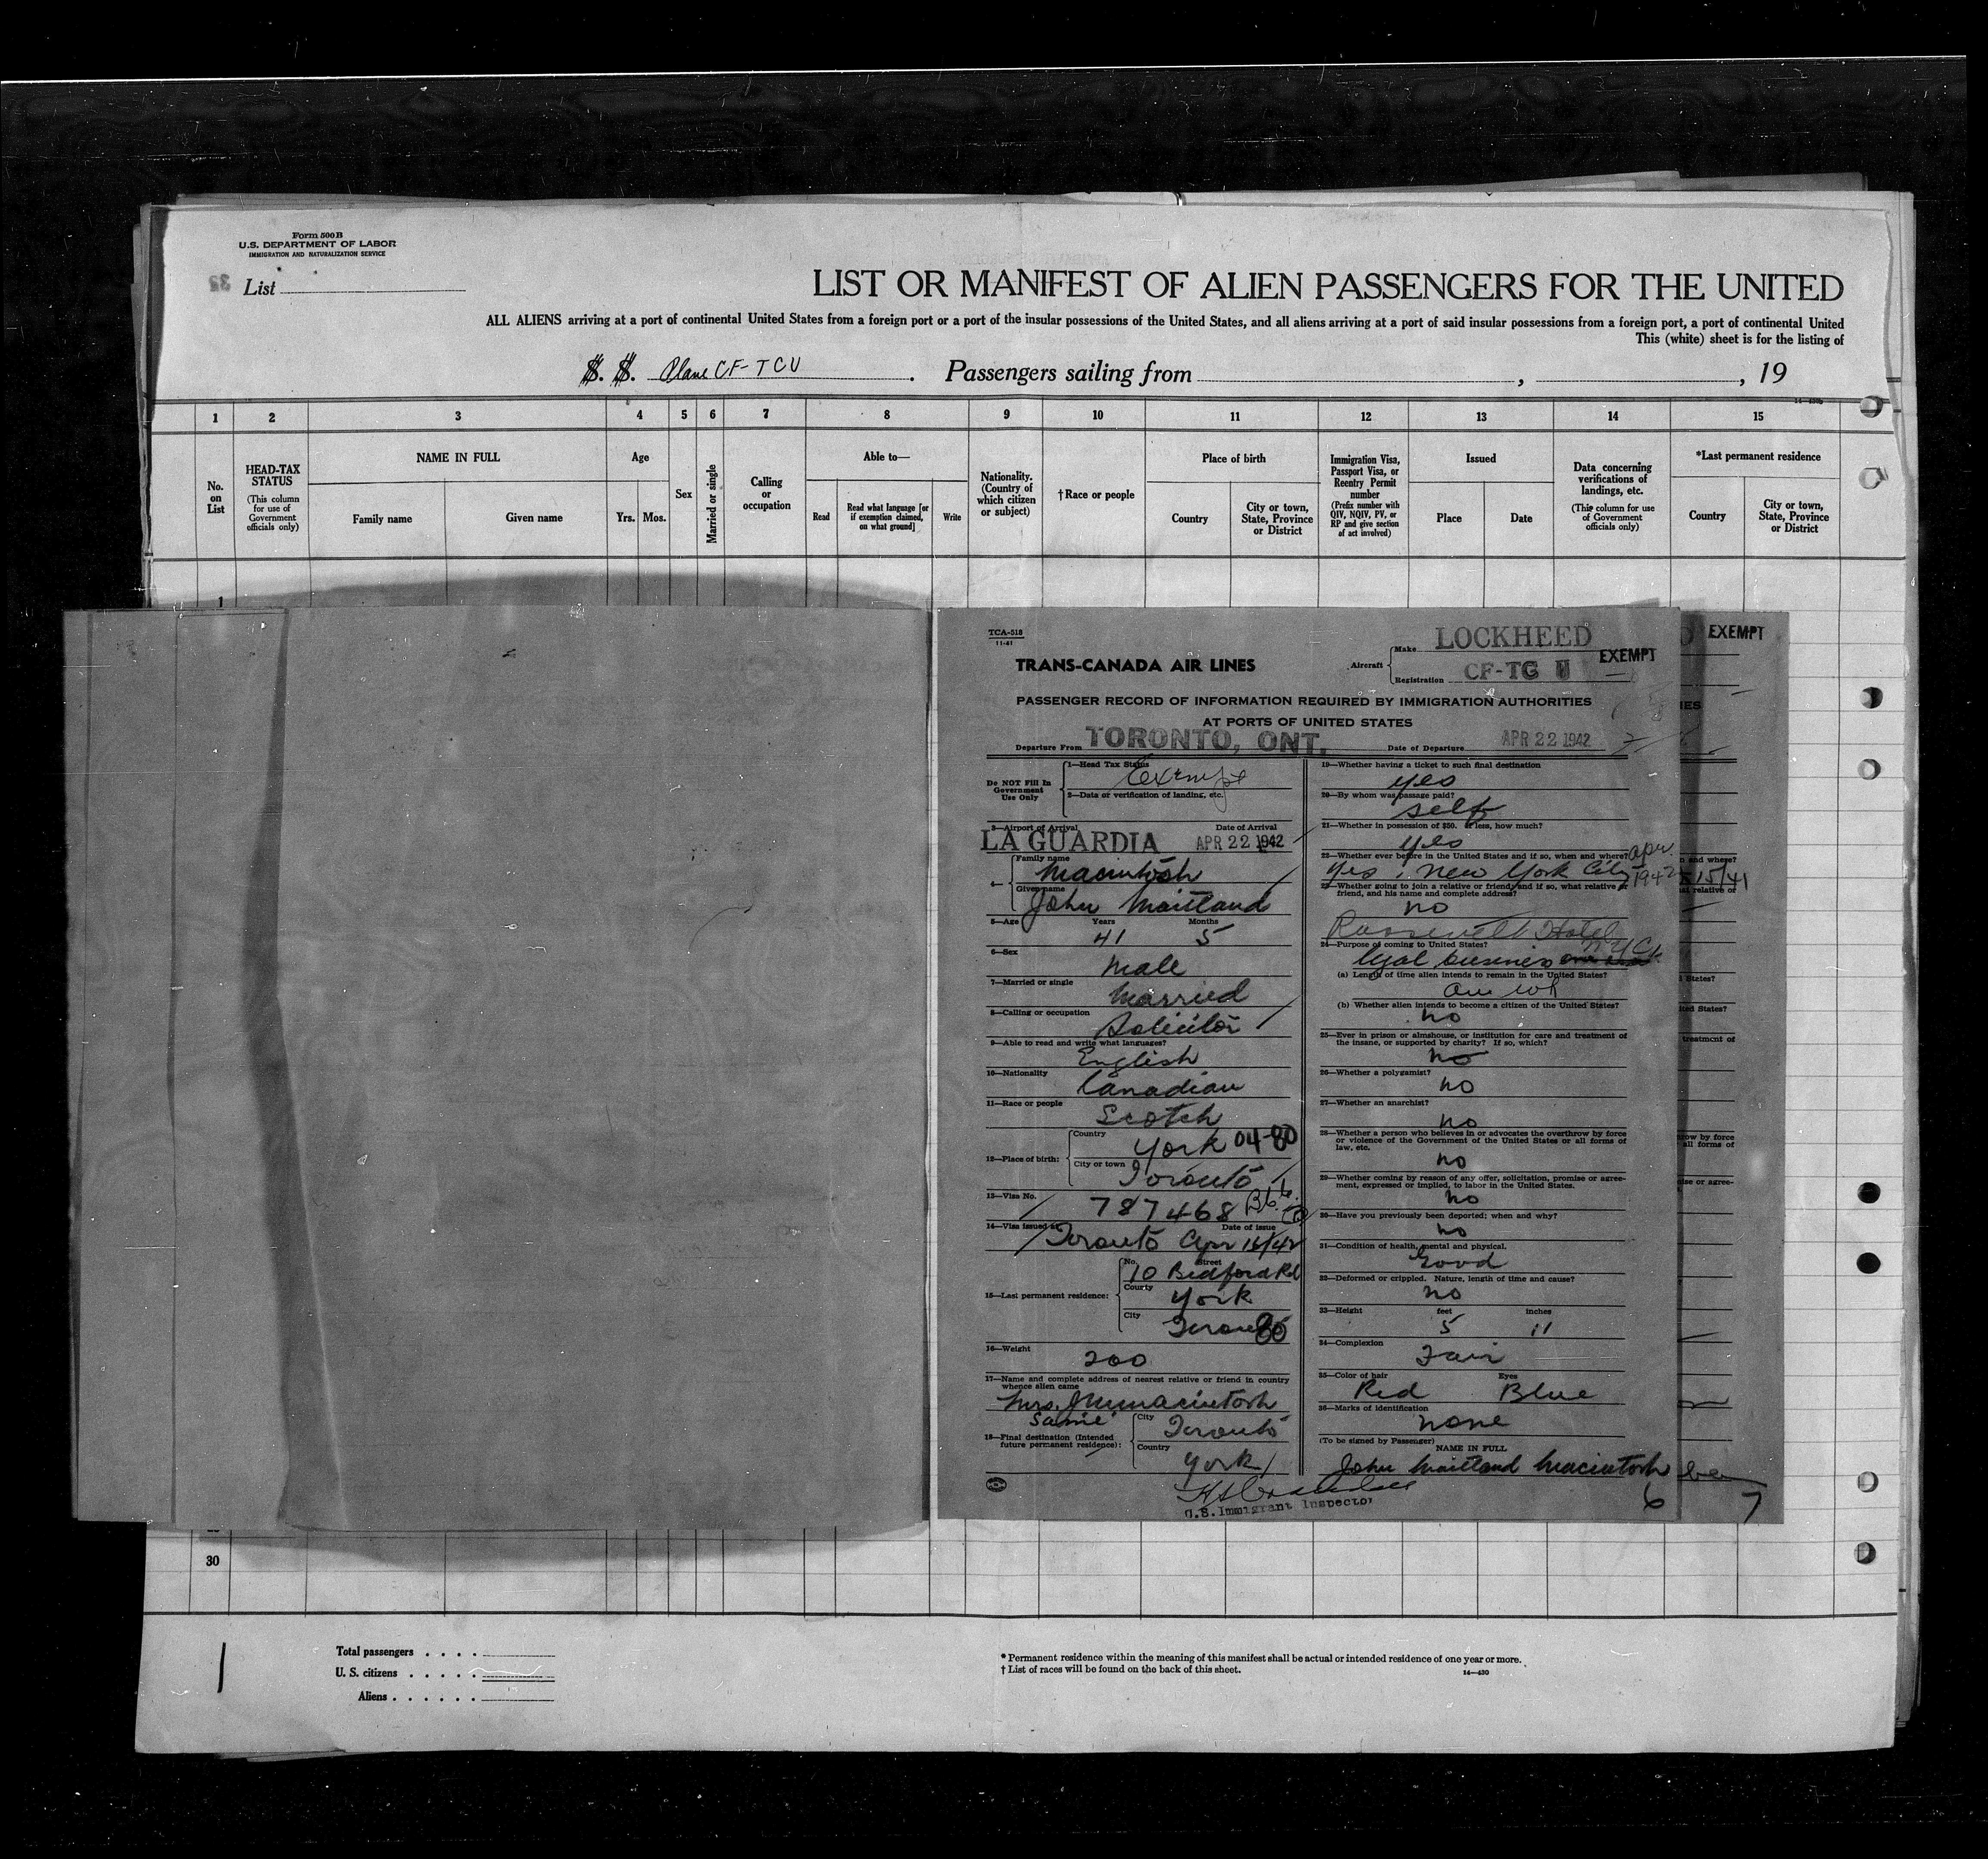 Form 500 B
U.S. DEPARTMENT OF LABOR
IMMIGRATION AND NATURALIZATION SERVICE
List
LIST OR MANIFEST OF ALIEN PASSENGERS FOR THE UNITED
ALL ALIENS arriving at a port of continental United States from a foreign port or a port of the insular possessions of the United States, and all aliens arriving at a port of said insular possessions from a foreign port, a port of continental United
This (white) sheet is for the listing of
S. S. Plane CF-TCU . Passengers sailing from , , 19
1 2 3 4 5 6 7 8 9 10 11 12 13 14 15
No. on List
HEAD-TAX STATUS
(This column for use of Government officials only)
NAME IN FULL
Family name
Given name
Age
Yrs. Mos.
Sex
Married or single
Calling or occupation
Able to—
Read
Read what language [or if exemption claimed, on what ground]
Write
Nationality. (Country of which citizen or subject)
†Race or people
Place of birth
Country
City or town, State, Province or District
Immigration Visa, Passport Visa, or Reentry Permit number
(Prefix number with QIV, NQIV, PV, or RP and give section of act involved)
Issued
Place
Date
Data concerning verifications of landings, etc.
(This column for use of Government officials only)
*Last permanent residence
Country
City or town, State, Province or District
1
TCA-518
11-41
TRANS-CANADA AIR LINES
Aircraft
Make LOCKHEED
Registration CF-TC U
EXEMPT
PASSENGER RECORD OF INFORMATION REQUIRED BY IMMIGRATION AUTHORITIES
AT PORTS OF UNITED STATES
Departure From TORONTO, ONT.
Date of Departure APR 22 1942
Do NOT Fill In
Government
Use Only
1—Head Tax Status
Exempt
2—Data or verification of landing, etc.
3—Airport of Arrival Date of Arrival
LA GUARDIA APR 22 1942
4—
Family name
Macintosh
Given name
John Maitland
5—Age Years Months
41 5
6—Sex
Male
7—Married or single
Married
8—Calling or occupation
Solicitor
9—Able to read and write what languages?
English
10—Nationality
Canadian
11—Race or people
Scotch
12—Place of birth:
Country
York 04-80
City or town
Toronto
13—Visa No.
787468
14—Visa issued at Date of issue
Toronto Apr 16/42
15—Last permanent residence:
No. Street
10 Bedford Rd
County
York
City
Toronto 80
16—Weight
200
17—Name and complete address of nearest relative or friend in country
whence alien came
Mrs. J M Macintosh
Same
18—Final destination (Intended
future permanent residence):
City
Toronto
Country
York
U.S. Immigrant Inspector
19—Whether having a ticket to such final destination
yes
20—By whom was passage paid?
self
21—Whether in possession of $50. or less, how much?
yes
22—Whether ever before in the United States and if so, when and where?
Yes, New York City Apr. 1942
23—Whether going to join a relative or friend, and if so, what relative or
friend, and his name and complete address?
no
Roosevelt Hotel
N Y C
24—Purpose of coming to United States?
legal business
(a) Length of time alien intends to remain in the United States?
one wk
(b) Whether alien intends to become a citizen of the United States?
no
25—Ever in prison or almshouse, or institution for care and treatment of
the insane, or supported by charity? If so, which?
no
26—Whether a polygamist?
no
27—Whether an anarchist?
no
28—Whether a person who believes in or advocates the overthrow by force
or violence of the Government of the United States or all forms of
law, etc.
no
29—Whether coming by reason of any offer, solicitation, promise or agree-
ment, expressed or implied, to labor in the United States.
no
30—Have you previously been deported; when and why?
no
31—Condition of health, mental and physical.
Good
32—Deformed or crippled. Nature, length of time and cause?
no
33—Height feet inches
5 11
34—Complexion
Fair
35—Color of hair Eyes
Red Blue
36—Marks of identification
none
(To be signed by Passenger)
NAME IN FULL
John Maitland Macintosh
6
EXEMPT
IES
n and where?
15/41
at relative or
States?
ited States?
treatment of
row by force
all forms of
ise or agree-
7
30
Total passengers
U. S. citizens
Aliens
* Permanent residence within the meaning of this manifest shall be actual or intended residence of one year or more.
† List of races will be found on the back of this sheet.
14—430